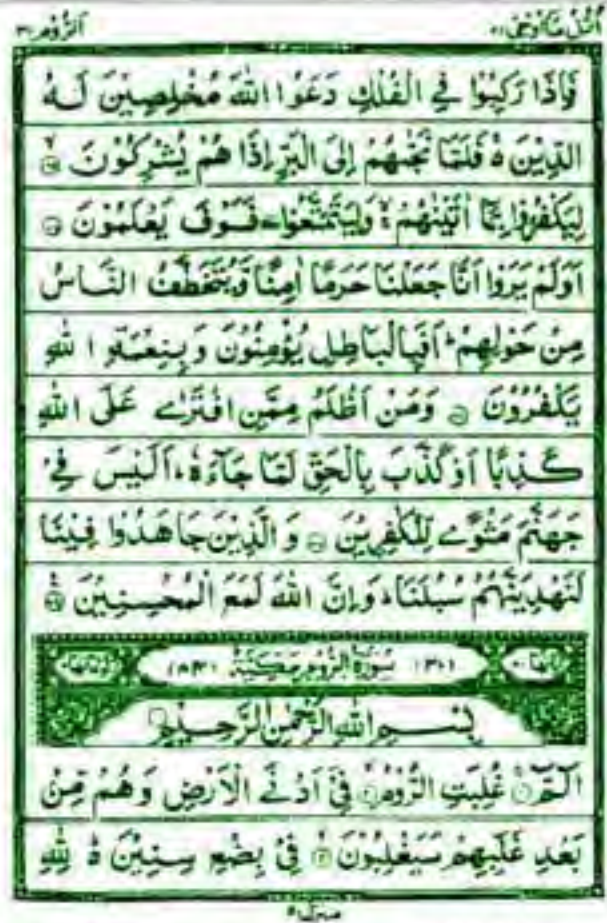 اتل ما اوحی ٢١
الروم ٣٠
فَاِذَا رَكِبُوْا فِي الْفُلْكِ دَعَوُا اللّٰهَ مُخْلِصِيْنَ لَهُ
الدِّيْنَ ۚ فَلَمَّا نَجّٰىهُمْ اِلَى الْبَرِّ اِذَا هُمْ يُشْرِكُوْنَ ۙ
لِيَكْفُرُوْا بِمَآ اٰتَيْنٰهُمْ ۙ وَلِيَتَمَتَّعُوْا ۥ فَسَوْفَ يَعْلَمُوْنَ
اَوَلَمْ يَرَوْا اَنَّا جَعَلْنَا حَرَمًا اٰمِنًا وَّيُتَخَطَّفُ النَّاسُ
مِنْ حَوْلِهِمْ ؕ اَفَبِالْبَاطِلِ يُؤْمِنُوْنَ وَبِنِعْمَةِ اللّٰهِ
يَكْفُرُوْنَ وَمَنْ اَظْلَمُ مِمَّنِ افْتَرٰى عَلَى اللّٰهِ
كَذِبًا اَوْ كَذَّبَ بِالْحَقِّ لَمَّا جَآءَهٗ ؕ اَلَيْسَ فِيْ
جَهَنَّمَ مَثْوًى لِّلْكٰفِرِيْنَ وَالَّذِيْنَ جَاهَدُوْا فِيْنَا
لَنَهْدِيَنَّهُمْ سُبُلَنَا ؕ وَاِنَّ اللّٰهَ لَمَعَ الْمُحْسِنِيْنَ
(٣٠) سُوْرَةُ الرُّوْمِ مَكِّيَّةٌ (٨٤)
بِسْمِ اللّٰهِ الرَّحْمٰنِ الرَّحِيْمِ
الٓمّٓ غُلِبَتِ الرُّوْمُ فِيْٓ اَدْنَى الْاَرْضِ وَهُمْ مِّنْ
بَعْدِ غَلَبِهِمْ سَيَغْلِبُوْنَ فِيْ بِضْعِ سِنِيْنَ ؕ لِلّٰهِ
منزل ٥